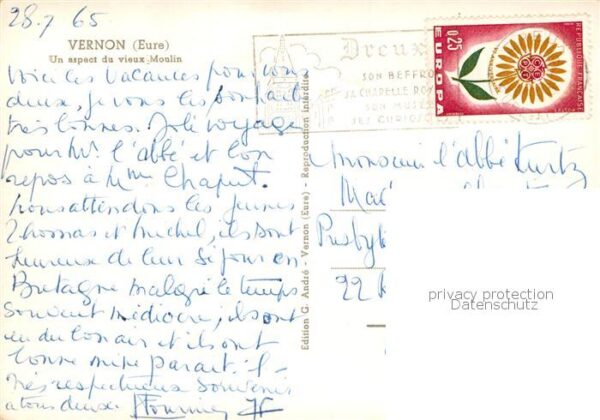 28.7 65
VERNON (Eure)
Un aspect du vieux Moulin
Voici les vacances pour vous
deux, je vous les souhaite
très bonnes. Joli voyage
pour Mr l'abbé et bon
repos à Mme Chaput.
Nous attendons les jeunes
Thomas et Michel, ils sont
heureux de leur séjour en
Bretagne malgré le temps
souvent médiocre, ils ont
eu du bon air et ils ont
bonne mine parait-il -
très respectueux souvenirs
a tous deux.
Edition G. André - Vernon (Eure) - Reproduction Interdite
Dreux
SON BEFFRO
SA CHAPELLE ROY
SON MUSÉE
SES CURIOS
0,25
EUROPA
REPUBLIQUE FRANÇAISE
POSTES
Monsieur l'abbé Kurtz
Presbyt
22
privacy protection
Datenschutz